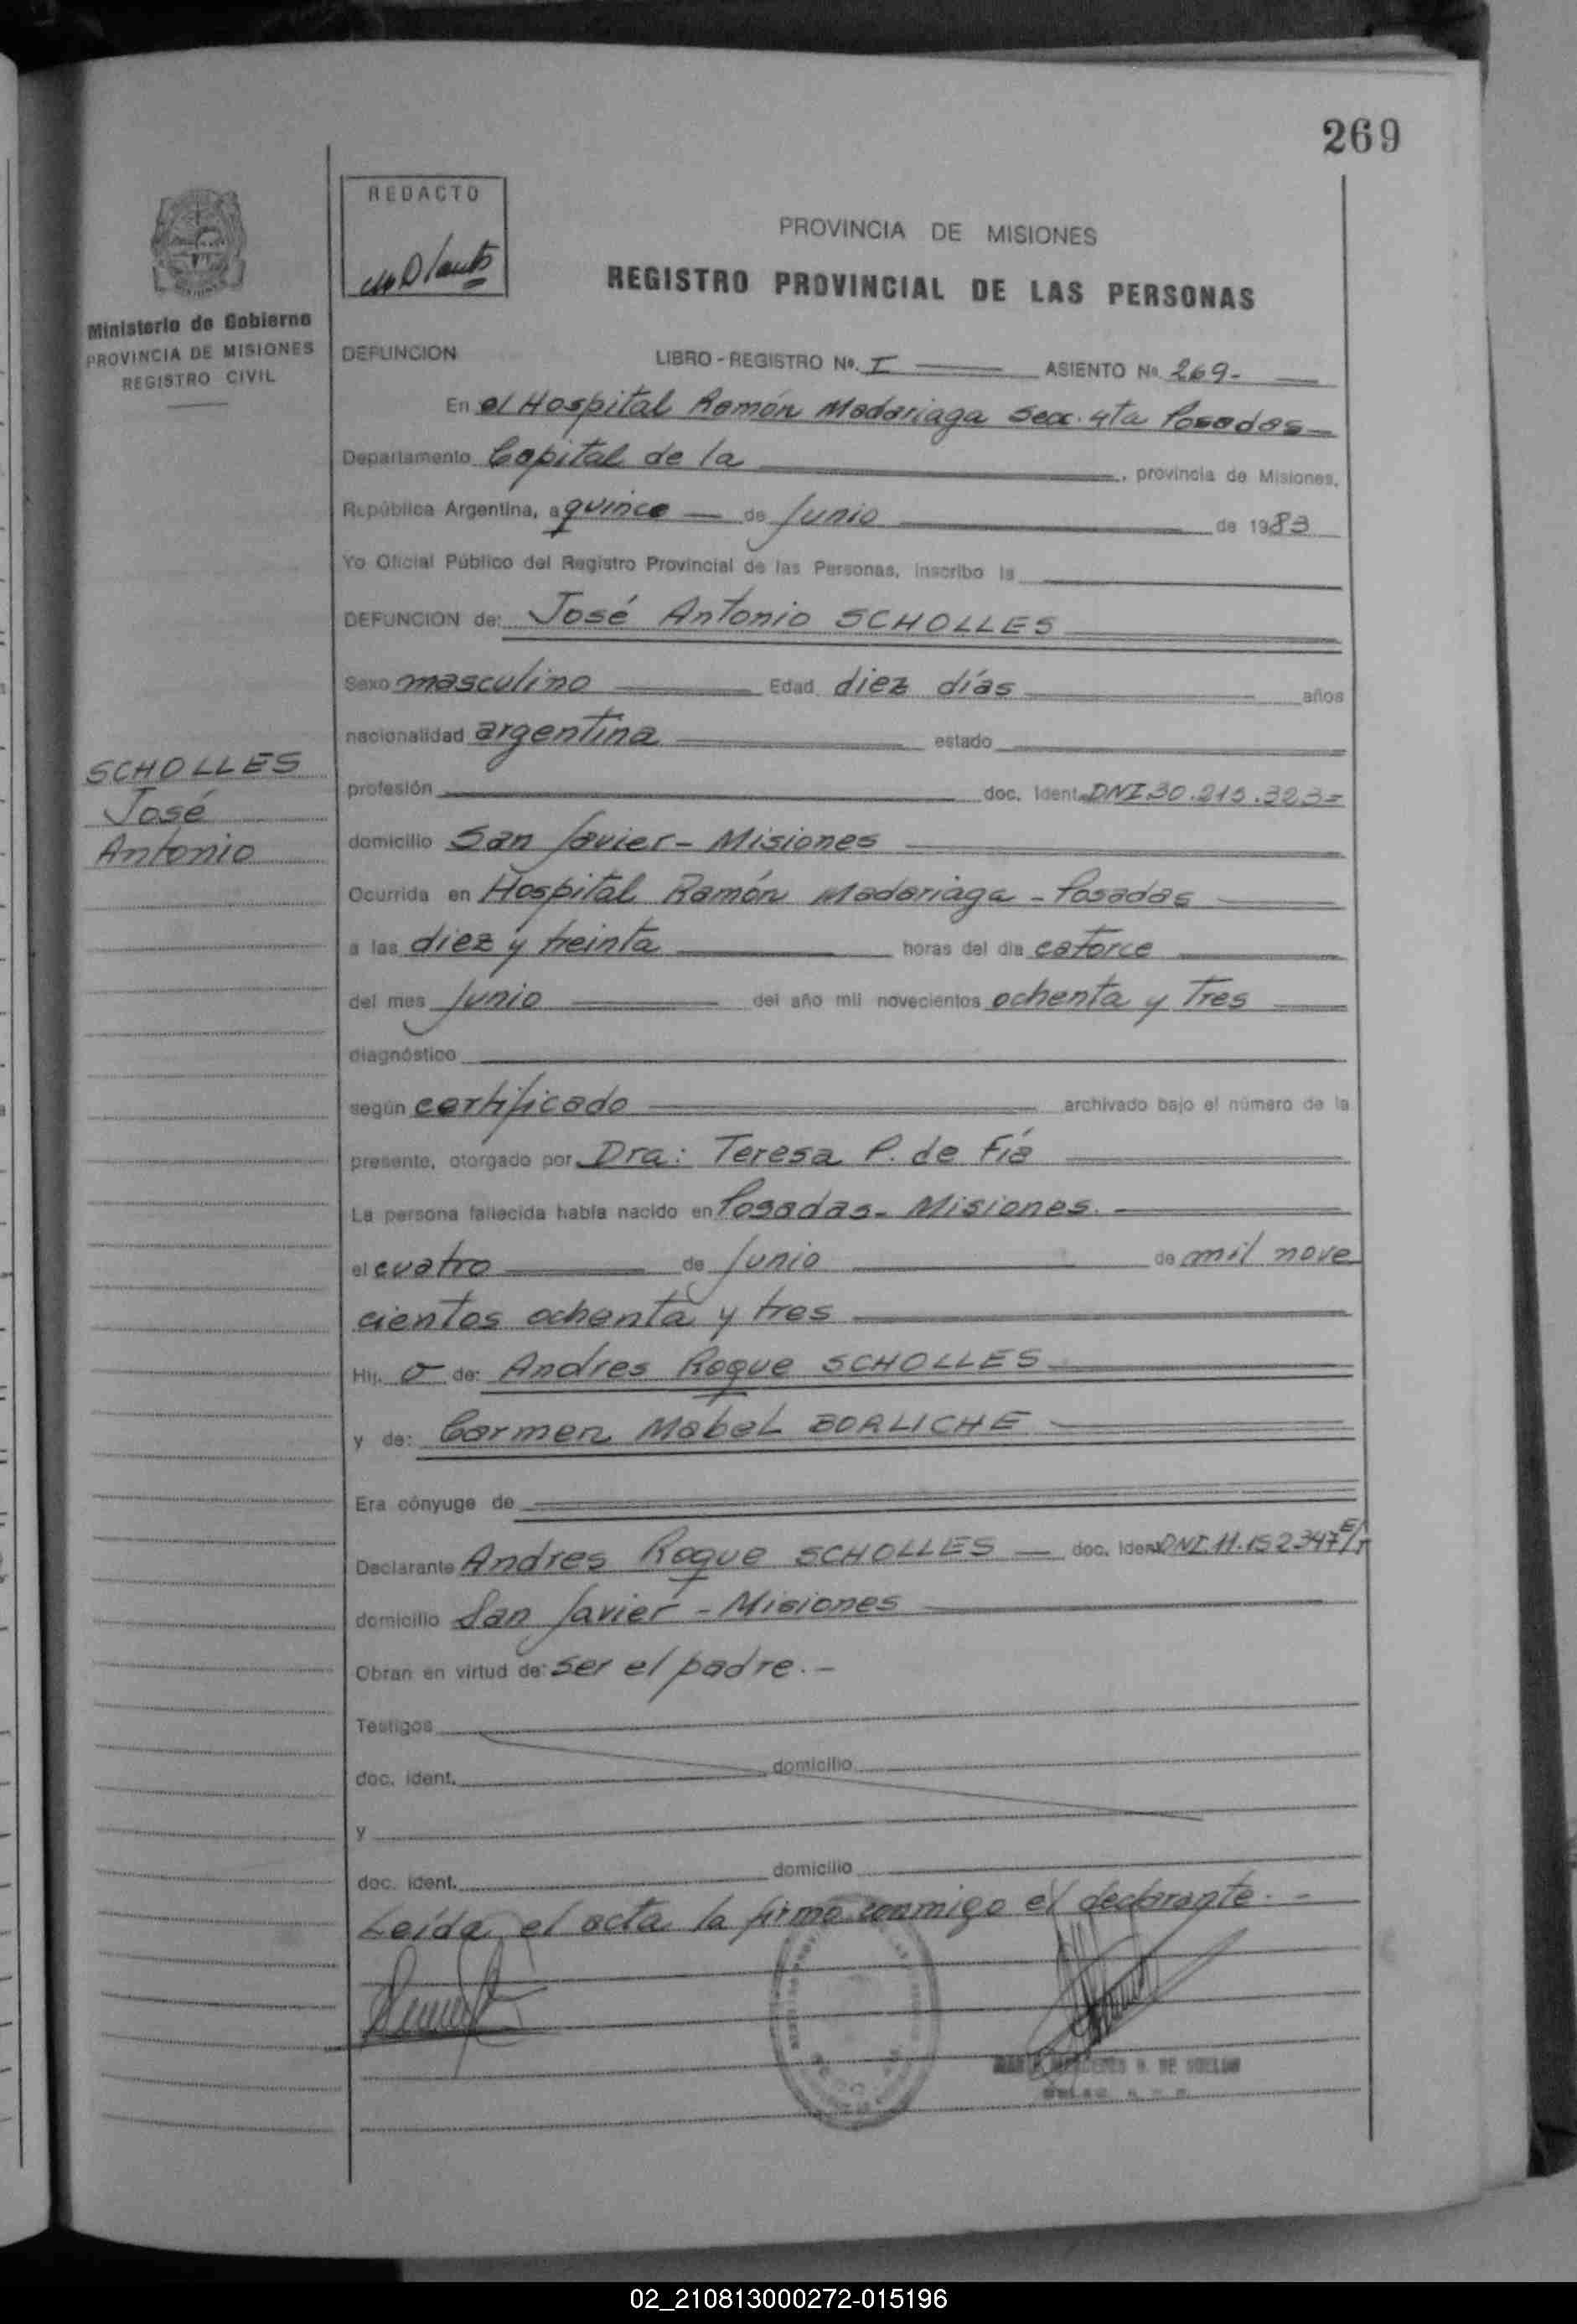 269
REDACTO
PROVINCIA DE MISIONES
REGISTRO PROVINCIAL DE LAS PERSONAS
Ministerio de Gobierno
PROVINCIA DE MISIONES
REGISTRO CIVIL
DEFUNCION LIBRO - REGISTRO Nº. I ASIENTO Nº 269-
En el Hospital Ramón Madariaga Secc. 4ta Posadas
Departamento Capital de la , provincia de Misiones,
República Argentina, a quince de Junio de 1983
Yo Oficial Público del Registro Provincial de las Personas, inscribo la
DEFUNCION de: José Antonio SCHOLLES
Sexo masculino Edad diez días años
nacionalidad argentina estado
SCHOLLES
José
Antonio
profesión doc. Ident. DNI.30.215.323=
domicilio San Javier - Misiones
Ocurrida en Hospital Ramón Madariaga - Posadas
a las diez y treinta horas del día catorce
del mes Junio del año mil novecientos ochenta y Tres
diagnóstico
según certificado archivado bajo el número de la
presente, otorgado por Dra: Teresa P. de Fía
La persona fallecida había nacido en Posadas - Misiones.
el cuatro de Junio de mil nove
cientos ochenta y tres
Hij. o de: Andres Roque SCHOLLES
y de: Carmen Mabel BORLICHE
Era cónyuge de
Declarante Andres Roque SCHOLLES doc. Ident. DNI.11.152.347 E/T
domicilio San Javier - Misiones
Obran en virtud de: ser el padre. -
Testigos
doc. ident. domicilio
y
doc. ident. domicilio
Leída el acta la firma conmigo el declarante. -
02_210813000272-015196